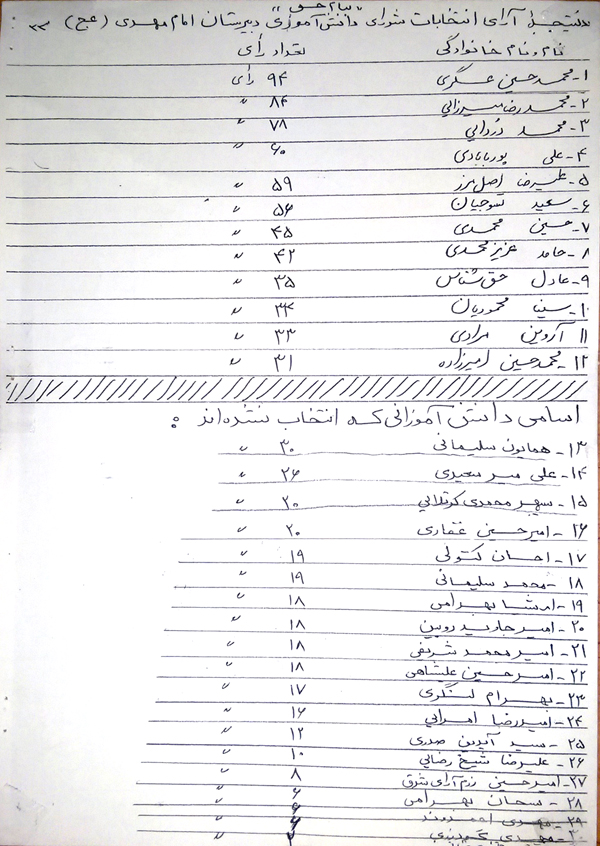 "بنام حق"
نتیجه آرای انتخابات شورای دانش آموزی دبیرستان امام مهدی (عج)
نام و نام خانوادگی تعداد رأی
۱- محمدحسین عسگری ۹۴ رأی
۲- محمدرضا میرزائی ۸۴ "
۳- محمد دردائی ۷۸ "
۴- علی پوربابادی ۶۰ "
۵- علیرضا اصل مرز ۵۹ "
۶- سعید تنوجیان ۵۶ "
۷- حسین محمدی ۴۵ "
۸- حامد عزیزمحمدی ۴۲ "
۹- عادل حق شناس ۳۵ "
۱۰- سینا محمودیان ۳۴ "
۱۱ آروین مرادی ۳۳ "
۱۲- محمدحسین امیرزاده ۳۱ "
اسامی دانش آموزانی که انتخاب نشده اند :
۱۳- همایون سلیمانی ۳۰ "
۱۴- علی میرسعیدی ۲۶ "
۱۵- سپهر محمدی کرتلائی ۲۰ "
۱۶- امیرحسین غفاری ۲۰ "
۱۷- احسان کتولی ۱۹ "
۱۸- محمد سلیمانی ۱۹ "
۱۹- ارشیا بهرامی ۱۸ "
۲۰- امیر جاوید روبین ۱۸ "
۲۱- امیرمحمد شریفی ۱۸ "
۲۲- امیرحسین علیشاهی ۱۸ "
۲۳- بهرام لشگری ۱۷ "
۲۴- امیررضا امرایی ۱۶ "
۲۵- سید آیدین صدری ۱۲ "
۲۶- علیرضا شیخ رضائی ۱۰ "
۲۷- امیرحسین رزم آرای شرق ۸ "
۲۸- سبحان بهرامی ۶ "
۲۹- مهدی احمدوند ۴ "
۳۰- مهدی ۲ "